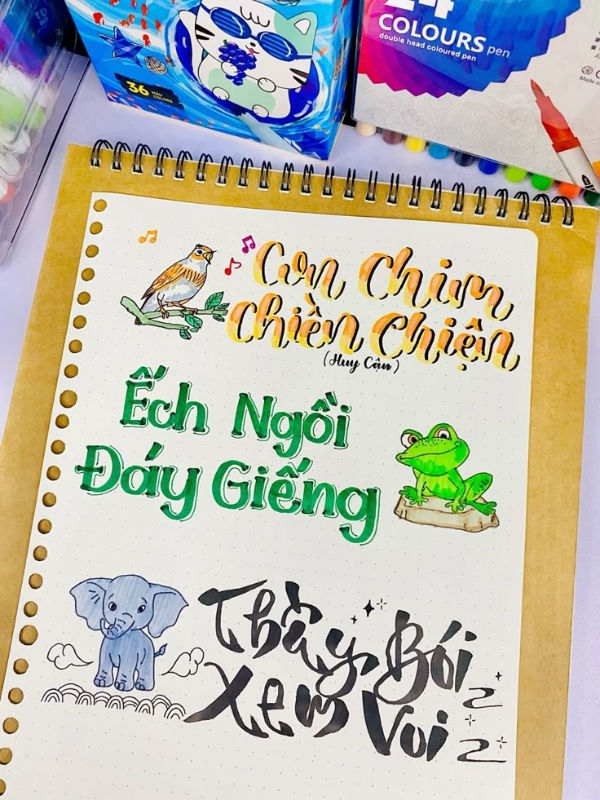 36 MÀU
COLORS
24
COLOURS pen
double head coloured pen
Con Chim
Chiền Chiện
(Huy Cận)
Ếch Ngồi
Đáy Giếng
Thầy Bói
Xem Voi